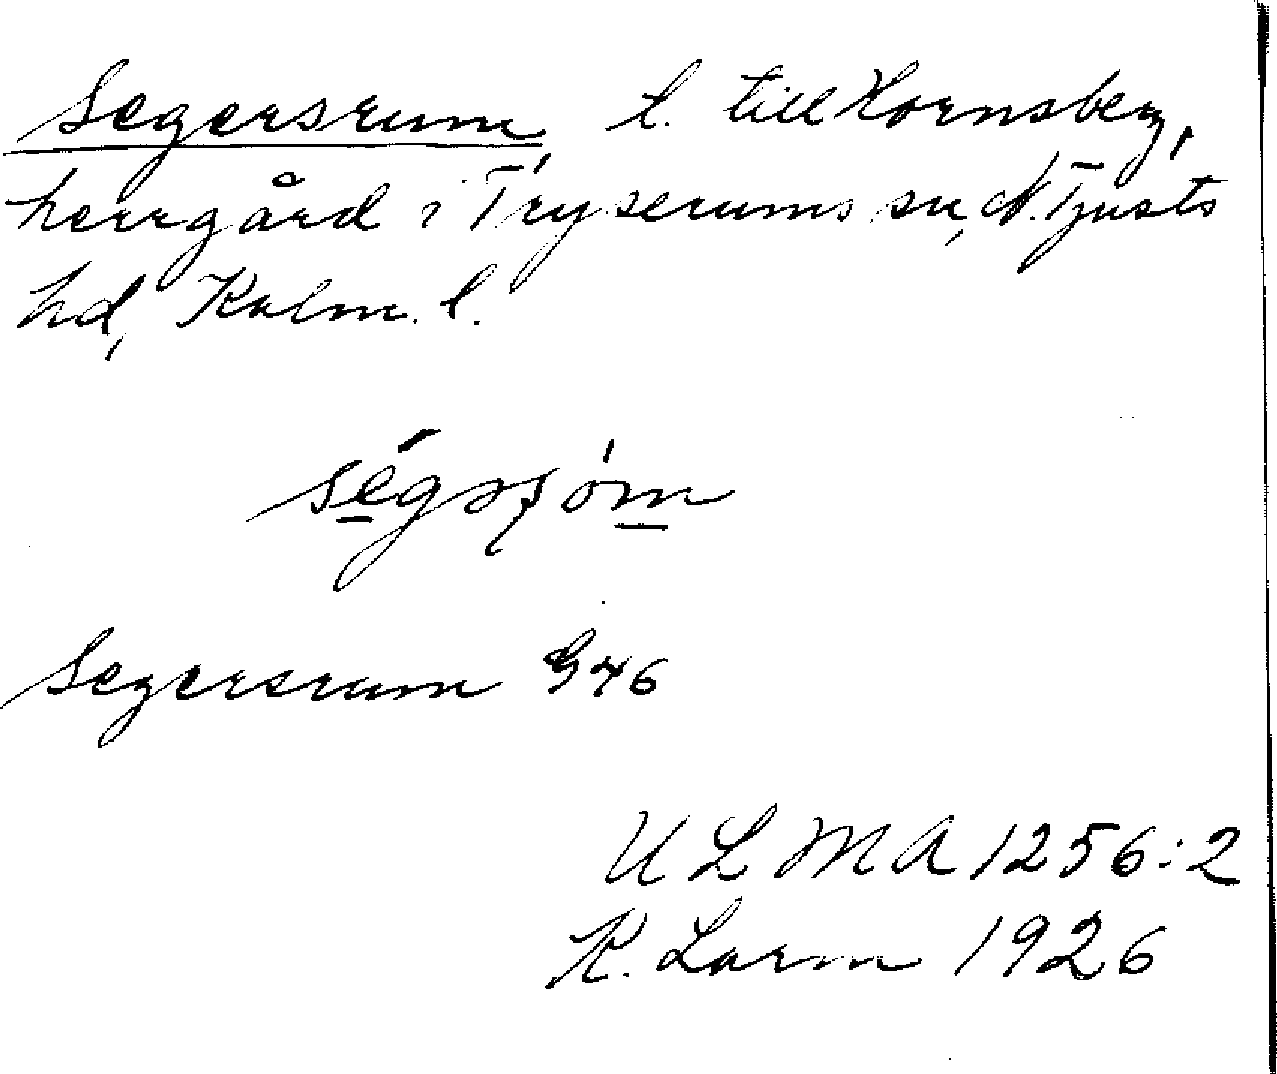 Segersrum t. till Hornsberg,
herrgård i Tryserums sn, N. Tjusts
hd, Kalm. l.
Segersrum G46
ULMA 1256:2
K. Larm 1926